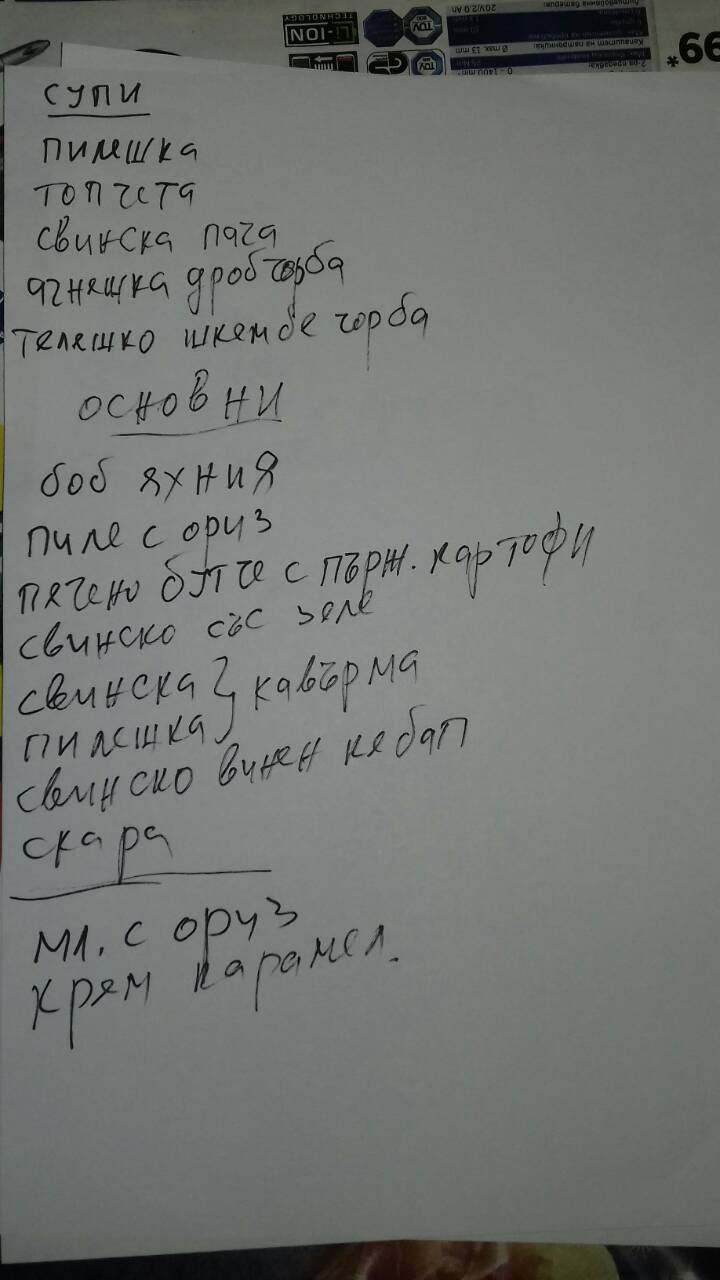 LI-ION
TECHNOLOGY
99*
20V/2.0 Ah
Ø max. 13 mm
0 - 1400 min⁻¹
супи
пилешка
топчета
свинска пача
агнешка дробчорба
телешко шкембе чорба
основни
боб яхния
пиле с ориз
печено бутче с пърж. картофи
свинско със зеле
свинска } кавърма
пилешка
свинско винен кебап
скара
мл. с ориз
крем карамел.